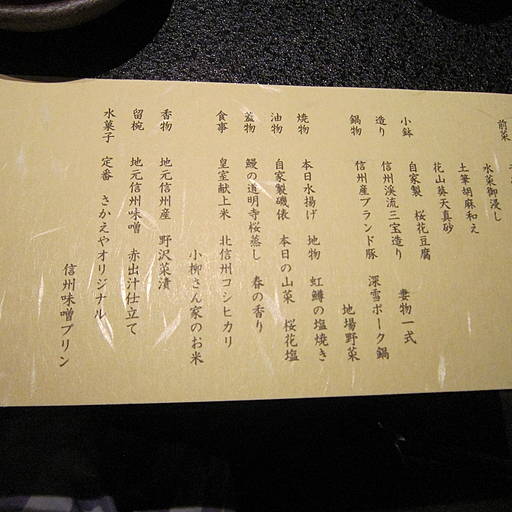 前菜
水菜御浸し
土筆胡麻和え
花山葵天真砂
小鉢 自家製 桜花豆腐
造り 信州渓流三宝造り 妻物一式
鍋物 信州産ブランド豚 深雪ポーク鍋
地場野菜
焼物 本日水揚げ 地物 虹鱒の塩焼き
油物 自家製磯俵 本日の山菜 桜花塩
蓋物 鰻の道明寺桜蒸し 春の香り
食事 皇室献上米 北信州コシヒカリ
小柳さん家のお米
香物 地元信州産 野沢菜漬
留椀 地元信州味噌 赤出汁仕立て
水菓子 定番 さかえやオリジナル
信州味噌プリン